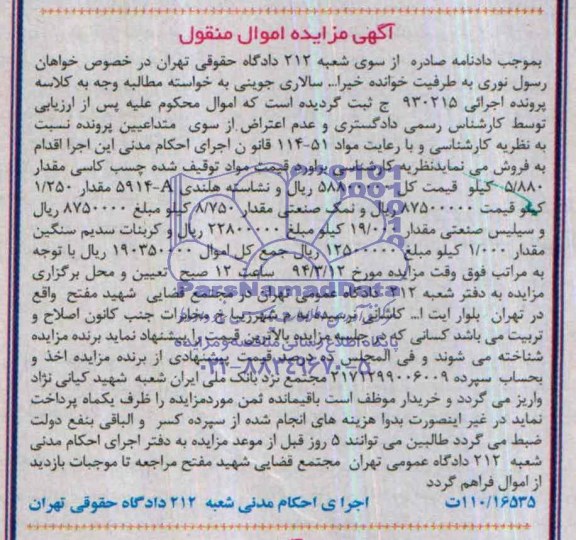 آگهی مزایده اموال منقول
بموجب دادنامه صادره از سوی شعبه ۲۱۲ دادگاه حقوقی تهران در خصوص خواهان
رسول نوری به طرفیت خوانده خیرا... سالاری جوینی به خواسته مطالبه وجه به کلاسه
پرونده اجرائی ۹۳۰۲۱۵ ج ثبت گردیده است که اموال محکوم علیه پس از ارزیابی
توسط کارشناس رسمی دادگستری و عدم اعتراض از سوی متداعیین پرونده نسبت
به نظریه کارشناسی و با رعایت مواد ۵۱-۱۱۴ قانون اجرای احکام مدنی این اجرا اقدام
به فروش می نمایدنظریه کارشناسی برآورد قیمت مواد توقیف شده چسب کاسی مقدار
۵/۸۸۰ کیلو قیمت کل ریال و نشاسته هلندی ۵۹۱۴-A مقدار ۱/۲۵۰
کیلو قیمت ۸۷۵۰۰۰۰۰ ریال و نمک صنعتی مقدار ۸/۷۵۰ کیلو مبلغ ۸۷۵۰۰۰۰ ریال
و سیلیس صنعتی مقدار ۱۹/۰۰۰ کیلو مبلغ ۲۲۸۰۰۰۰۰ ریال و کربنات سدیم سنگین
مقدار ۱/۰۰۰ کیلو مبلغ ۱۲۵۰۰۰۰۰ ریال جمع کل اموال ۱۹۰۳۵۰۰۰۰ ریال با توجه
به مراتب فوق وقت مزایده مورخ ۹۴/۳/۱۲ ساعت ۱۲ صبح تعیین و محل برگزاری
مزایده به دفتر شعبه ۲۱۲ دادگاه عمومی تهران در مجتمع قضایی شهید مفتح واقع
در تهران بلوار ایت ا... کاشانی نرسیده به م شهرزیبا خ مخابرات جنب کانون اصلاح و
تربیت می باشد کسانی که در جلسه مزایده بالاترین قیمت را پیشنهاد نماید برنده مزایده
شناخته می شوند و فی المجلس ده درصد قیمت پیشنهادی از برنده مزایده اخذ و
بحساب سپرده ۲۱۷۲۲۹۹۰۰۶۰۰۹ مجتمع نزد بانک ملی ایران شعبه شهید کیانی نژاد
واریز می گردد و خریدار موظف است باقیمانده ثمن موردمزایده را ظرف یکماه پرداخت
نماید در غیر اینصورت بدوا هزینه های انجام شده از سپرده کسر و الباقی بنفع دولت
ضبط می گردد طالبین می توانند ۵ روز قبل از موعد مزایده به دفتر اجرای احکام مدنی
شعبه ۲۱۲ دادگاه عمومی تهران مجتمع قضایی شهید مفتح مراجعه تا موجبات بازدید
از اموال فراهم گردد
۱۱۰/۱۶۵۳۵ت اجرای احکام مدنی شعبه ۲۱۲ دادگاه حقوقی تهران
ParsNamadData
پایگاه اطلاع رسانی مناقصه و مزایده
۰۲۱-۸۸۳۴۹۶۷۰-۵